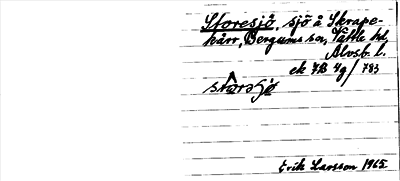 Storesjö, sjö å Skrape-
kärr, Bergums sn, Vättle hd,
Älvsb. l.
ek 7B 4g / 783
stòrəsjø
Erik Larsson 1965